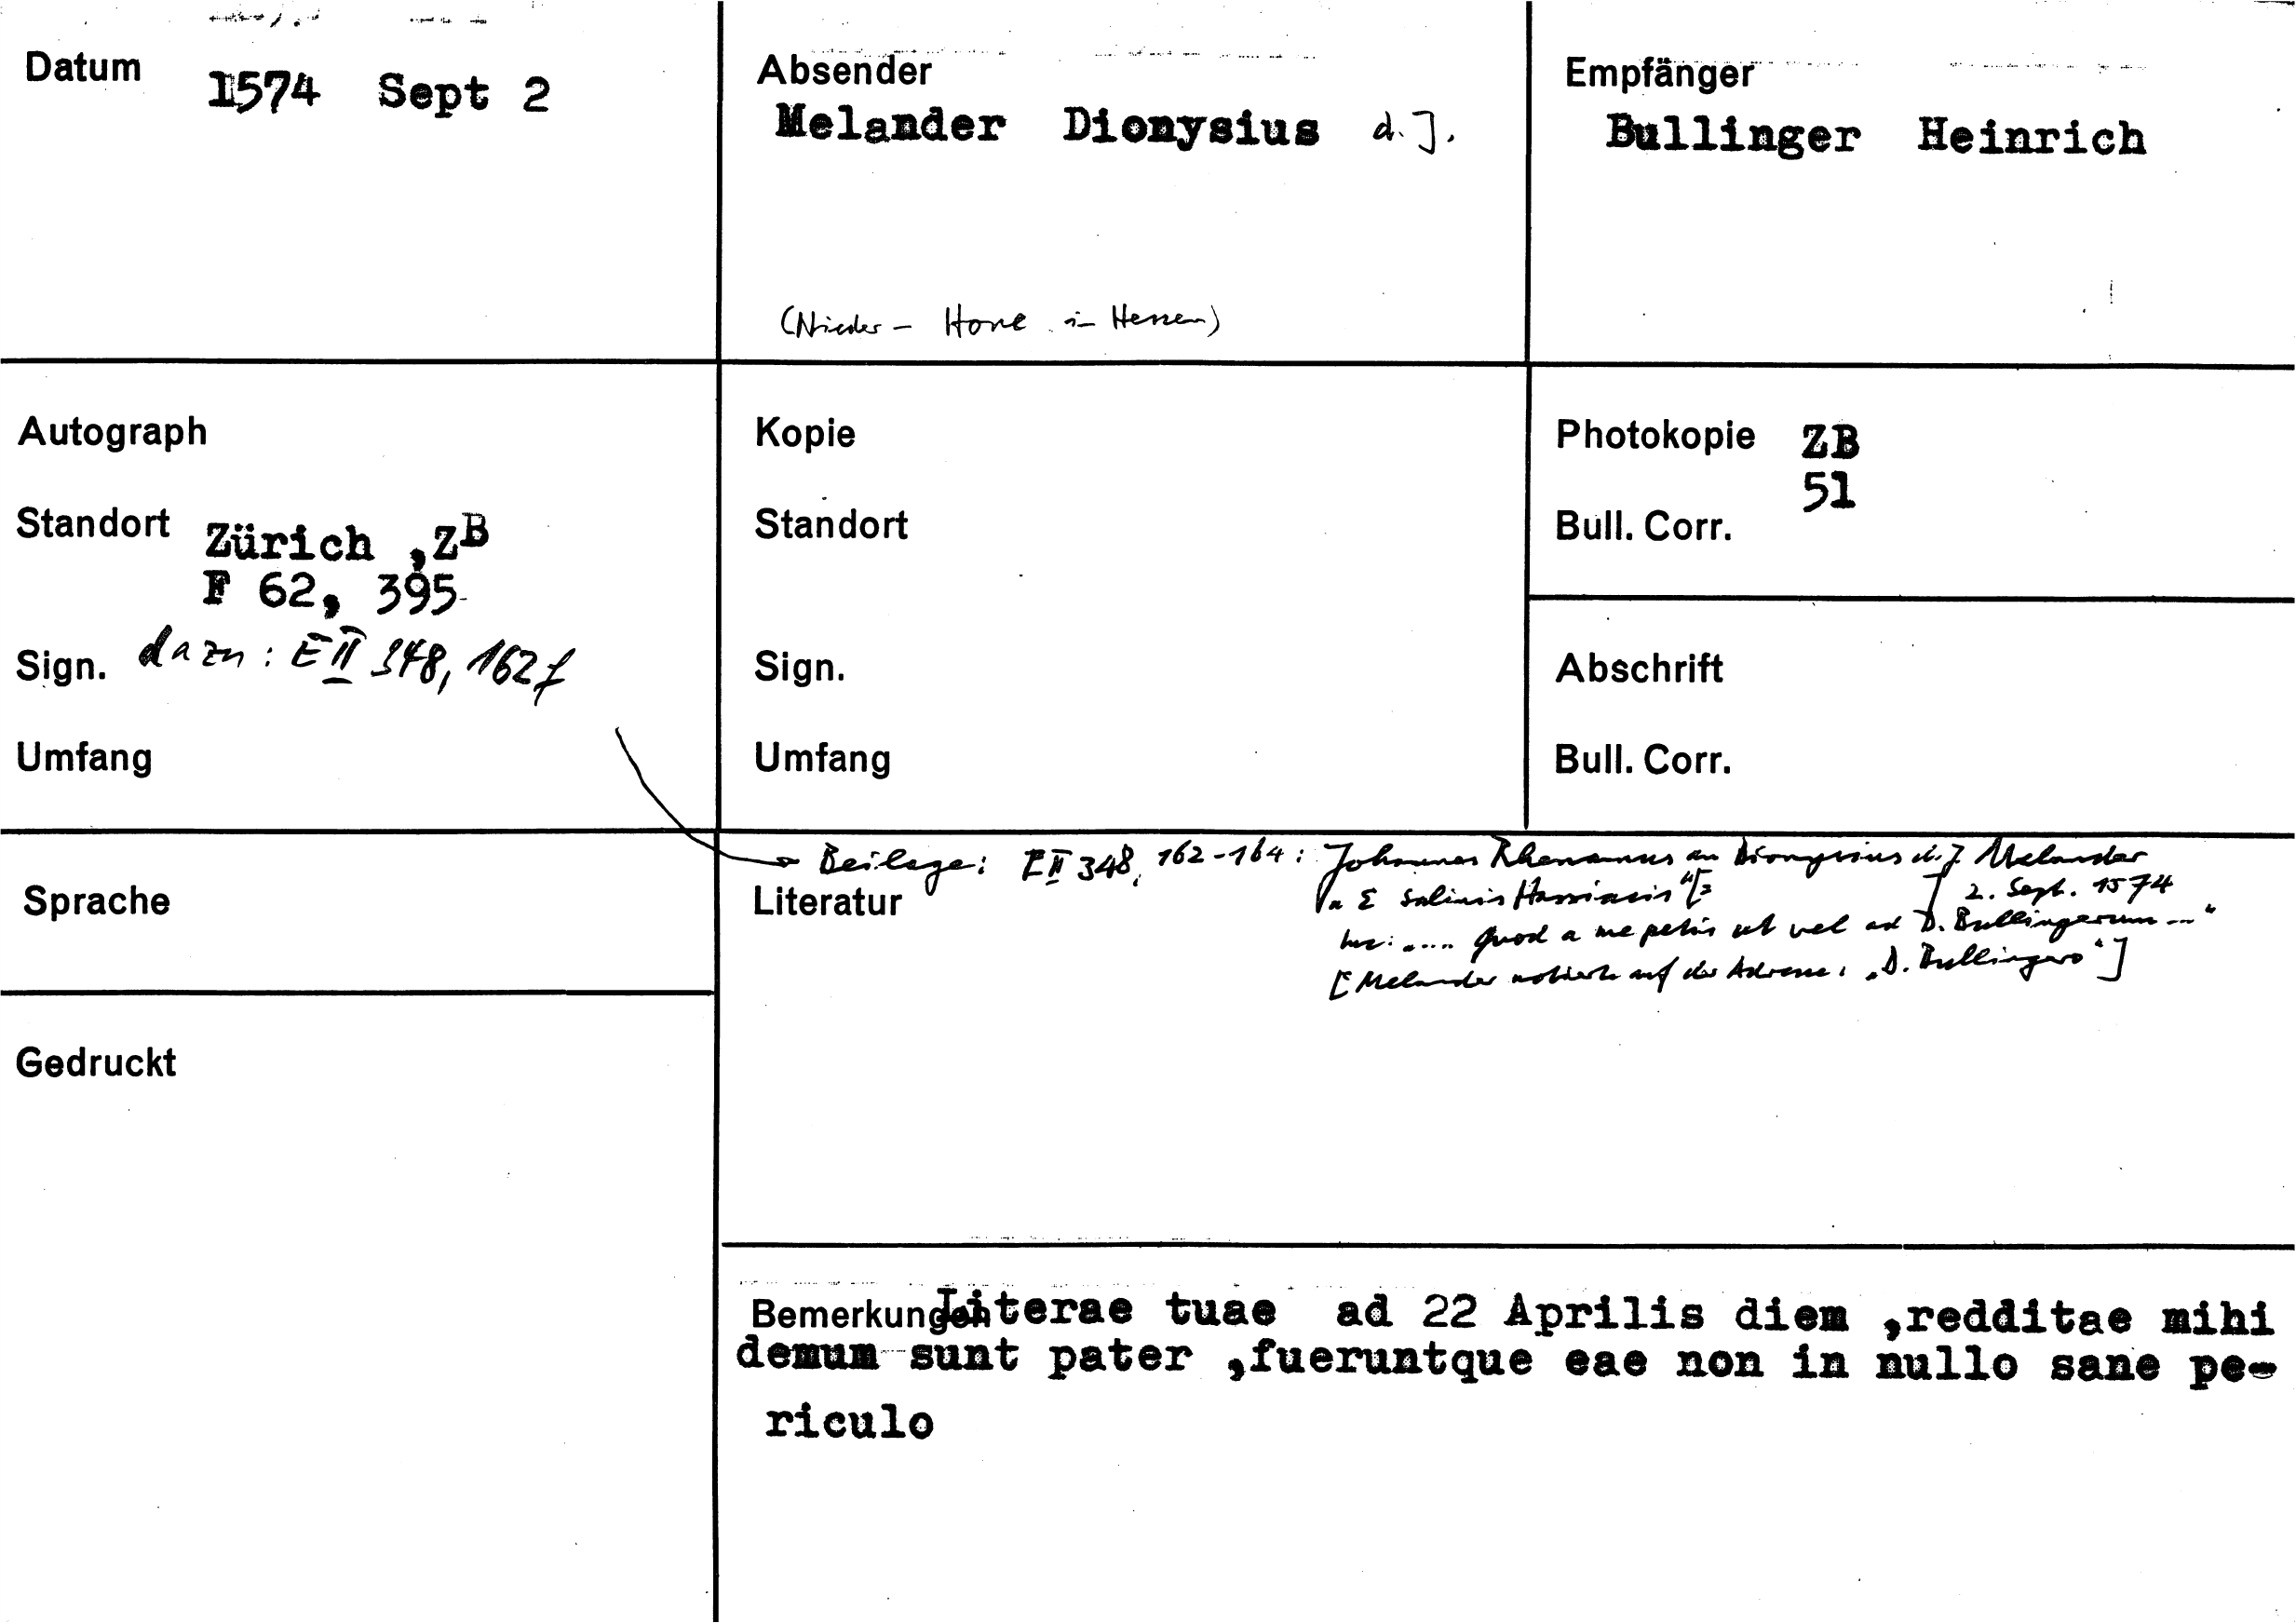 Datum 1574 Sept 2
Absender
Melander Dionysius d. J.
(Nieder-Hone in Hessen)
Empfänger
Bullinger Heinrich
Autograph
Standort Zürich ,ZB
F 62, 395
Sign. dazu: E II 348, 162f
Umfang
Kopie
Standort
Sign.
Umfang
Photokopie ZB
51
Bull. Corr.
Abschrift
Bull. Corr.
Sprache
Gedruckt
Beilage: E II 348, 162-164: Johannes Rhenanus an Dionysius d. J. Melander
Literatur
"E Salinis Hassiacis" 2. Sept. 1574
Inc: ".... Quod a me petis ut vel ad D. Bullingerum ..."
[Melander notierte auf der Adresse: "D. Bullingero"]
Bemerkungen Literae tuae ad 22 Aprilis diem ,redditae mihi
demum sunt pater ,fueruntque eae non in nullo sane pe-
riculo